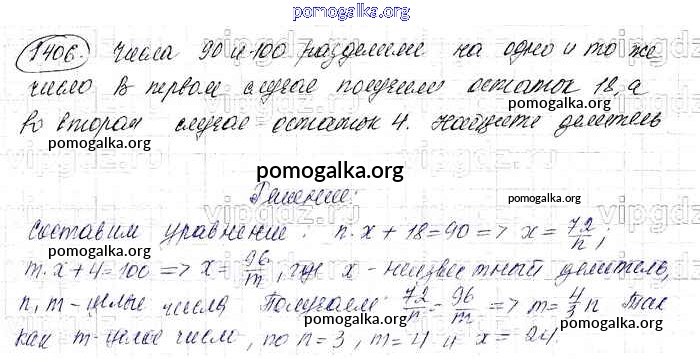 pomogalka.org
1406. Числа 90 и 100 разделили на одно и то же
число. В первом случае получили остаток 18, а
pomogalka.org
во втором случае - остаток 4. Найдите делитель
pomogalka.org
pomogalka.org
Решение:
pomogalka.org
Составим уравнение: n·x + 18 = 90 => x = 72/n;
m·x + 4 = 100 => x = 96/m, где x - неизвестный делитель,
pomogalka.org
n, m - целые числа. Получаем: 72/n = 96/m => m = 4/3 n Так
как m - целое число, то n = 3, m = 4 и x = 24.
pomogalka.org
pomogalka.org